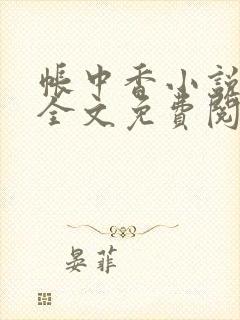 帐中香小說
全文免費閱
晏菲